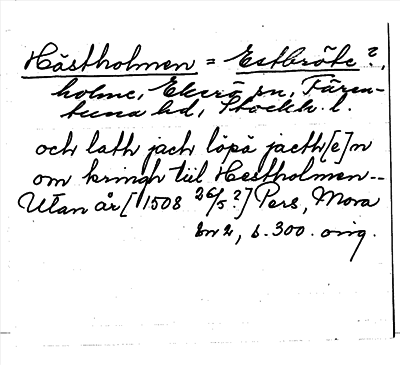 Hästholmen = Estbröte?,
holme, Ekerö sn, Fären-
tuna hd, Stockh. l.
och lath jach löpä jacth[e]n
om kringh tiil Hestholmen--
Utan år [1508 26/5?] Pers, Mora
bn 2, s. 300. orig.